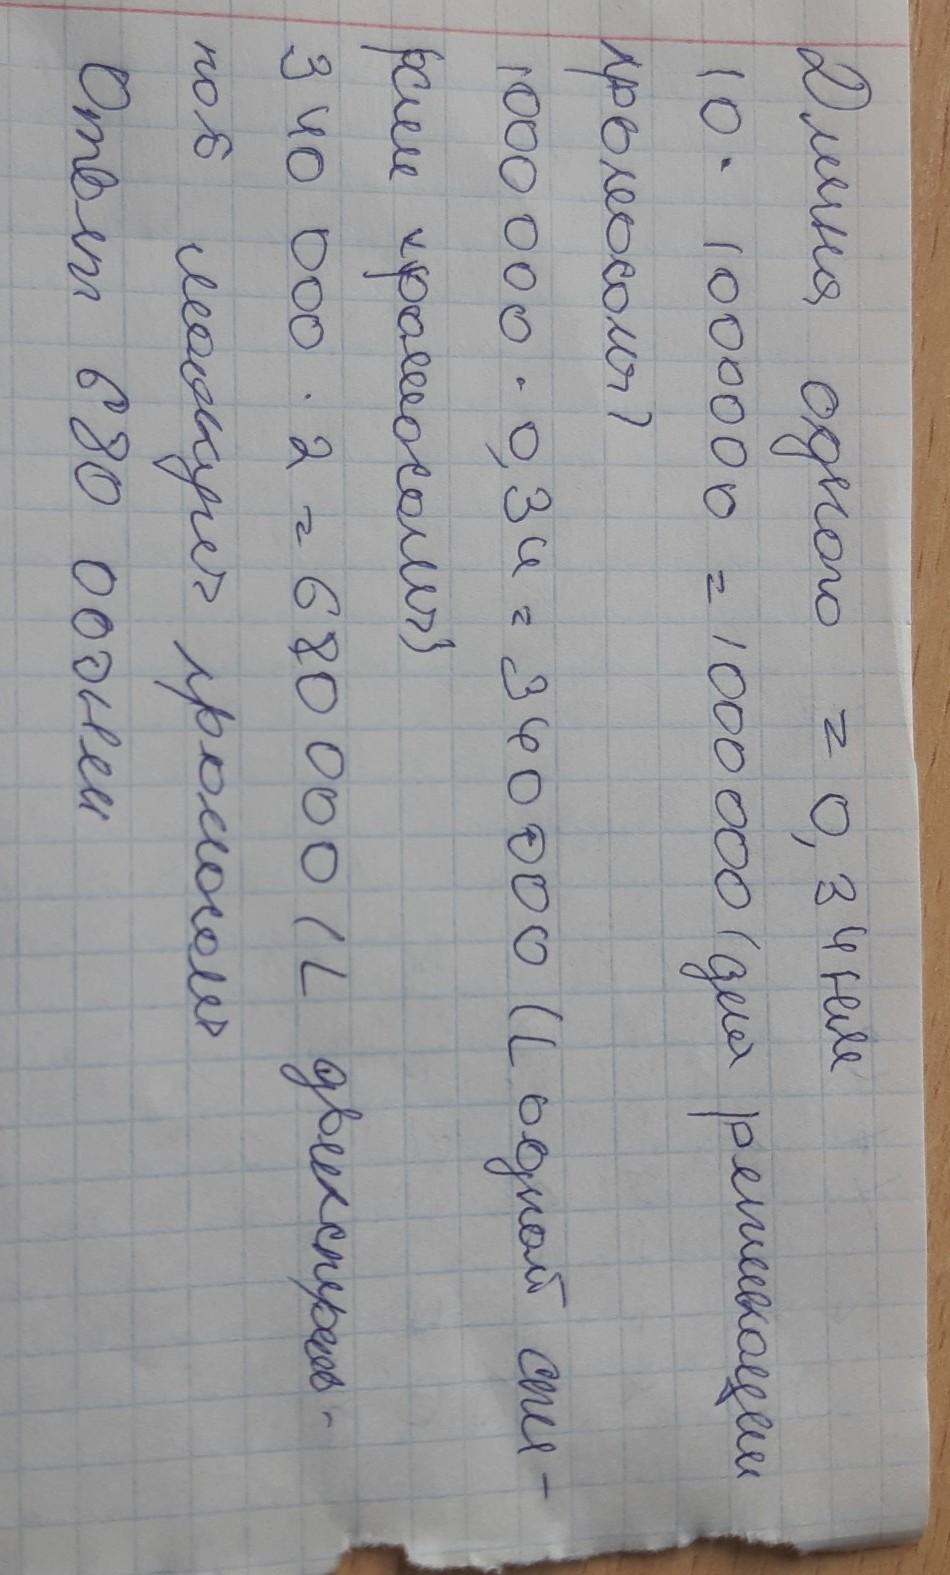 Длина одного = 0,34нм
10 · 100000 = 1000 000 (для репликации
хромосомы)
1000 000 · 0,34 = 340 000 (L одной спи-
рали хромосомы)
340 000 · 2 = 680 000 (L двухспираль-
ной молекулы хромосомы
Ответ 680 000нм